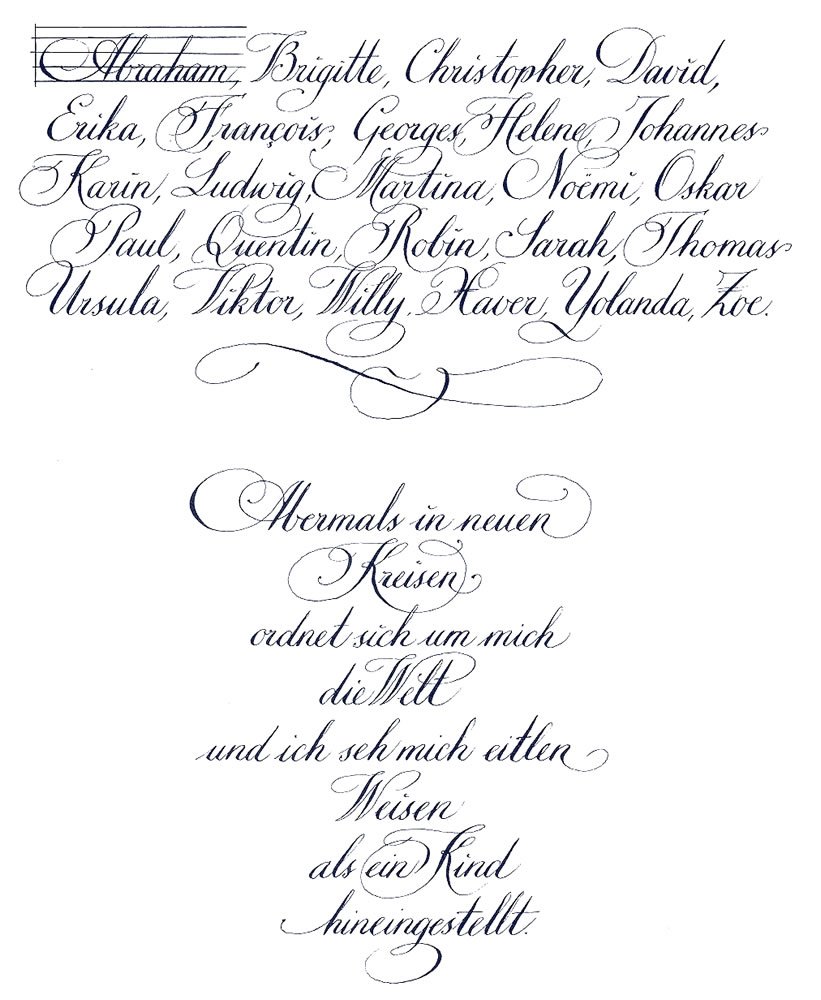 Abraham, Brigitte, Christopher, David,
Erika, François, Georges, Helene, Johannes
Karin, Ludwig, Martina, Noëmi, Oskar
Paul, Quentin, Robin, Sarah, Thomas
Ursula, Viktor, Willy, Xaver, Yolanda, Zoe.
Abermals in neuen
Kreisen
ordnet sich um mich
die Welt
und ich seh mich eitlen
Weisen
als ein Kind
hineingestellt.